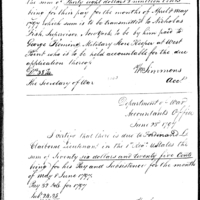 sum of Thirty eight dollars & nineteen Cents
being for his pay for the months of April & May
1797 which sum is to be transmitted to Nicholas
Fish Supervisor New York to be by him paid to
George Fleming Military Store Keeper at West
Point who is to be held accountable for the due
application thereof
Wm Simmons
The Secretary of War
Acct
Department of War
Accountants Office
June 28th 1797
I certify that there is due to Ferdinand L
Claiborne Lieutenant in the
the
sum of Seventy six dollars and twenty five Cents
being for his Pay and Subsistence for the months
of May & June 1797
Pay 52 Dolls for 1797
Sub 24.25